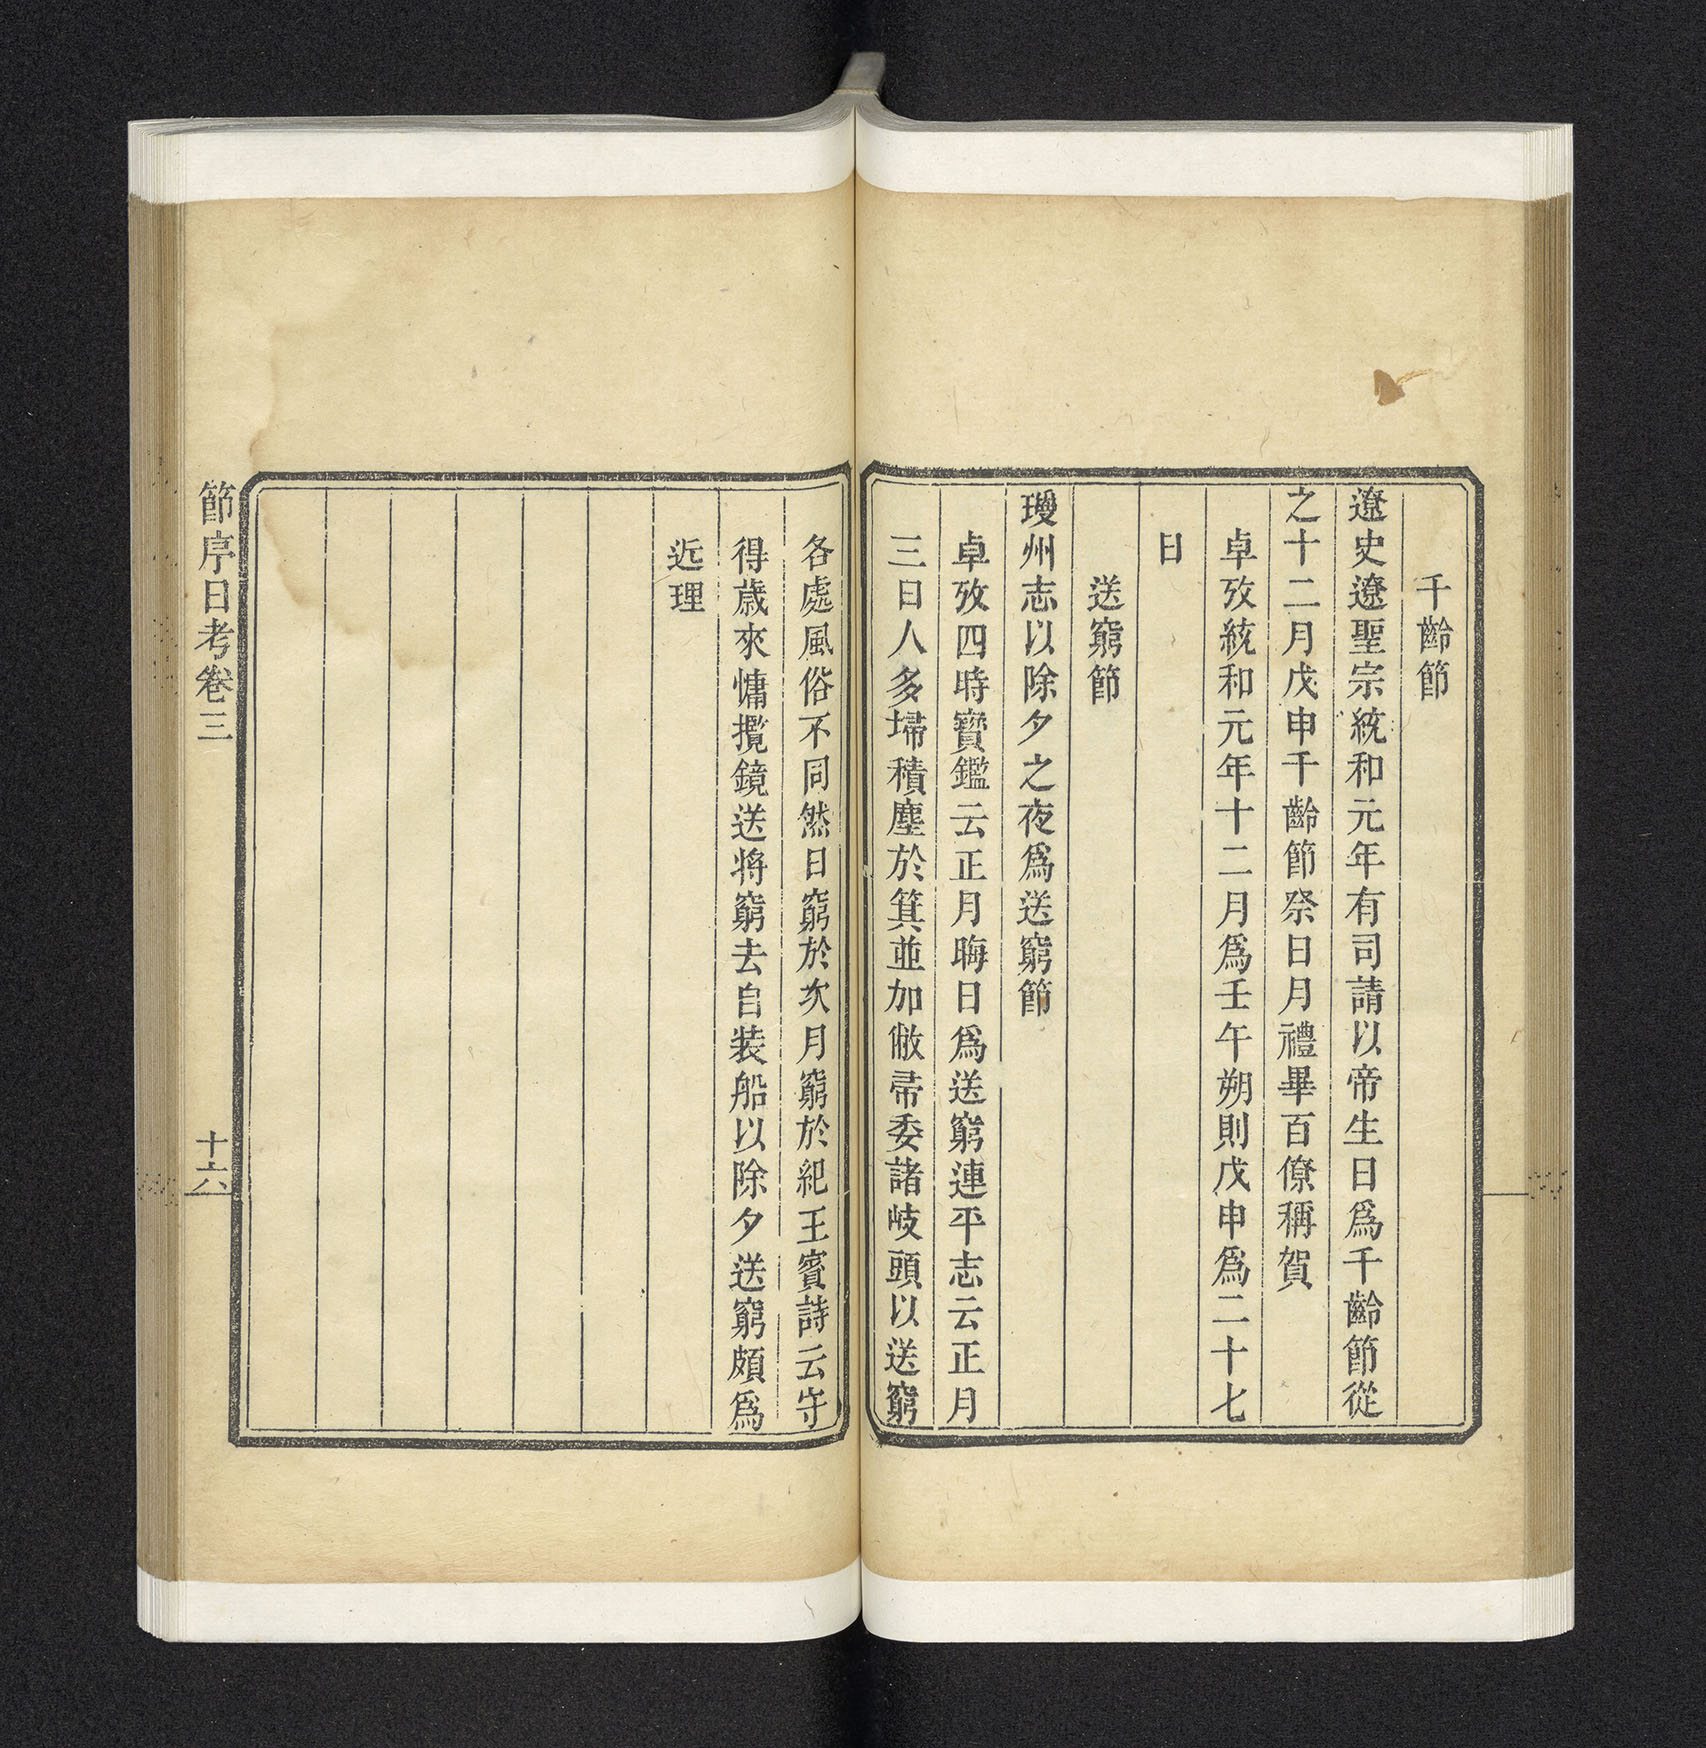 千齡節
遼史遼聖宗統和元年有司請以帝生日爲千齡節從
之十二月戊申千齡節祭日月禮畢百僚稱賀
卓攷統和元年十二月爲壬午朔則戊申爲二十七
日
送窮節
瓊州志以除夕之夜爲送窮節
卓攷四時寶鑑云正月晦日爲送窮連平志云正月
三日人多埽積塵於箕並加敝帚委諸岐頭以送窮
各處風俗不同然日窮於次月窮於紀王賓詩云守
得歲來慵攬鏡送將窮去自裝船以除夕送窮頗爲
近理
節序日考卷三
十六